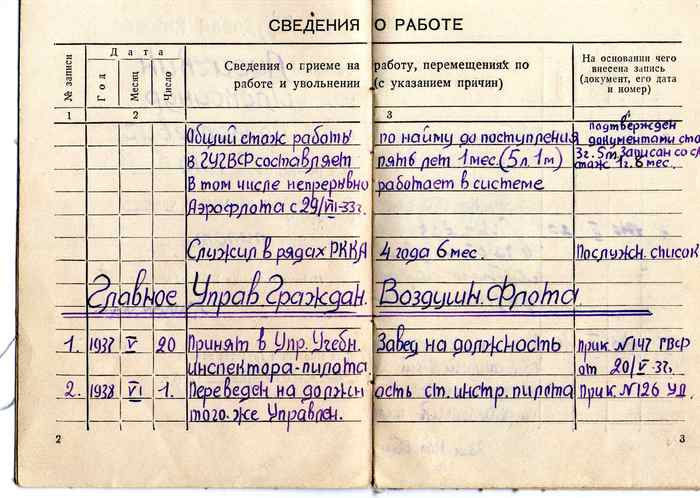 СВЕДЕНИЯ О РАБОТЕ
№ записи
Дата
Год
Месяц
Число
Сведения о приеме на работу, перемещениях по
работе и увольнении (с указанием причин)
На основании чего
внесена запись
(документ, его дата
и номер)
1 2 3 4
Общий стаж работы по найму до поступления
в ГУГВФ составляет пять лет 1 мес. (5 л. 1 м)
В том числе непрерывно работает в системе
Аэрофлота с 29/VII-33г.
подтвержден
документами ста
3г. 5м, Записан со сл
стаж 1г. 8 мес.
Служил в рядах РККА 4 года 6 мес. Послужн. список
Главное Управ. Граждан. Воздушн. Флота.
1. 1937 V 20 Принят в Упр. Учебн. Завед на должность Прик. N147 ГВСР
инспектора-пилота. от 20/V-37г.
2. 1938 VI 1. Переведен на должн ость ст. инстр. пилота Прик. N126 УД.
того-же Управлен.
2 3